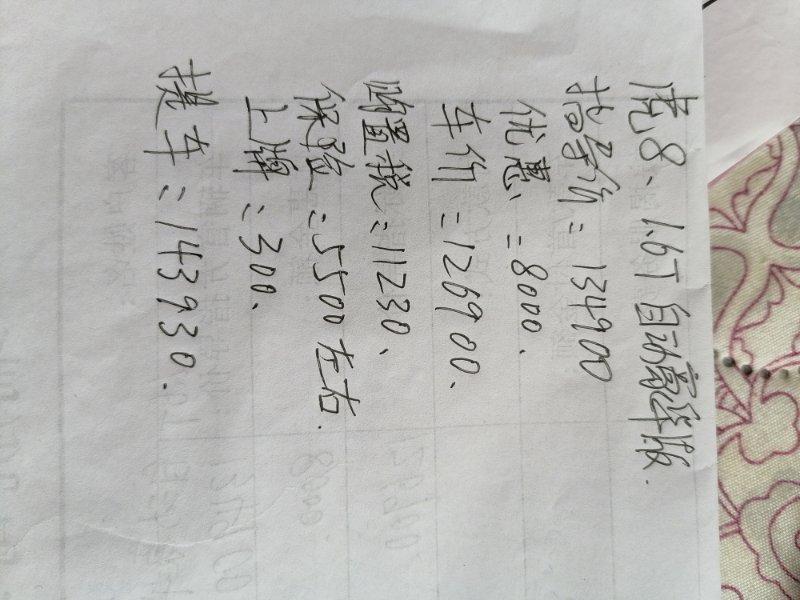 虎8、1.6T自动豪华版.
指导价=134900
优惠=8000、
车价=126900、
购置税=11230、
保险=5500左右.
上牌=300、
提车=143930.